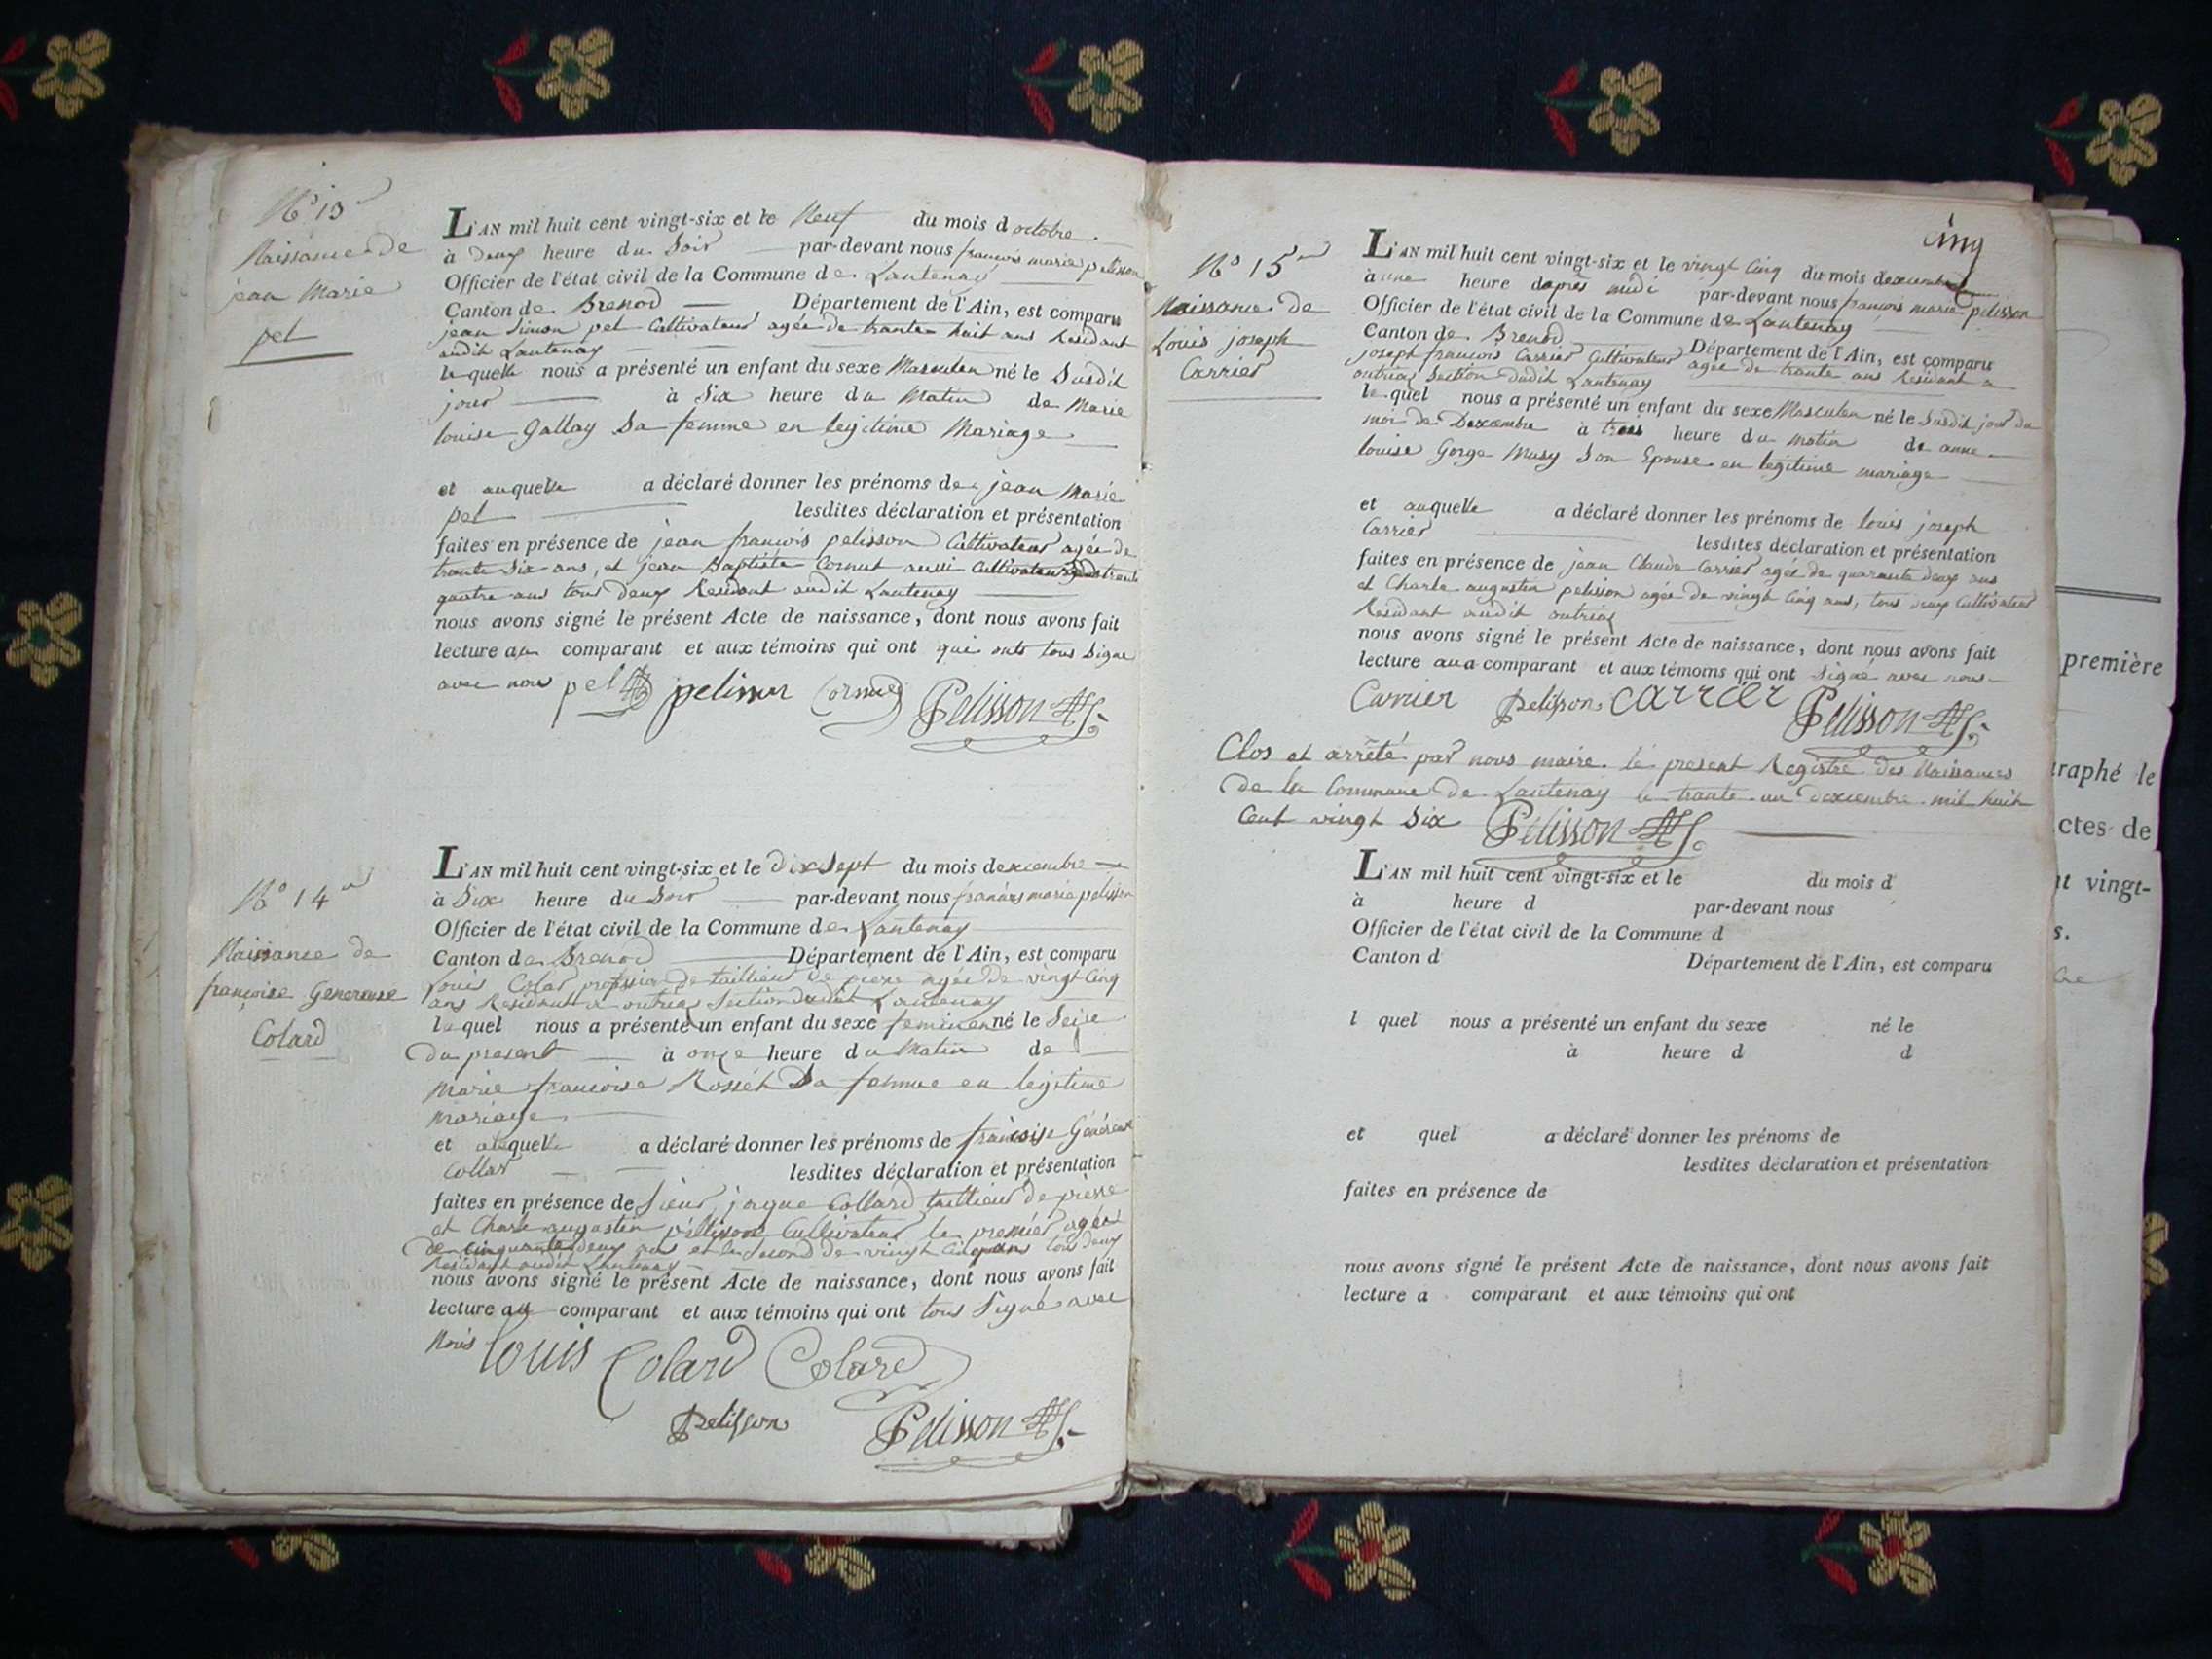 N° 13
Naissance de
jean Marie
pet
L'AN mil huit cent vingt-six et le Neuf du mois d octobre
à deux heure du Soir par-devant nous francois marie pelisson
Officier de l'état civil de la Commune de Lantenay
Canton de Brenod Département de l'Ain, est comparu
jean Simon pet Cultivateur agée de trante huit ans Residant
audit Lantenay
le quelle nous a présenté un enfant du sexe Masculen né le Susdit
jour à Six heure du Matin de Marie
louise Gallay Sa femme en legitime Mariage
et auquelle a déclaré donner les prénoms de jean Marie
pet lesdites déclaration et présentation
faites en présence de jean francois pelisson Cultivateur agée de
trante Six ans, et jean Baptiste Cornut aussi Cultivateur agée de trante
quatre ans tous deux Residant audit Lantenay
nous avons signé le présent Acte de naissance, dont nous avons fait
lecture au comparant et aux témoins qui ont qui onts tous Signe
avec nous pet pelisson Cornut Pelisson
N° 14
Naissance de
françoise Genereuse
Colard
L'AN mil huit cent vingt-six et le dix Sept du mois dexcembre
à Six heure du Soir par-devant nous francois marie pelisson
Officier de l'état civil de la Commune de Lantenay
Canton de Brenod Département de l'Ain, est comparu
Louis Colar profssion de taillieur de pierre agée de vingt Cinq
ans Residant a outriaz Section dudit Lantenay
le quel nous a présenté un enfant du sexe feminen né le Seize
du present à onze heure du Matin de
Marie francoise Rosset Sa femme en legitime
mariage
et auquelle a déclaré donner les prénoms de francoise Généreuse
Collar lesdites déclaration et présentation
faites en présence de Sieur jaque Collard taillieur de pierre
et Charle augustin pellisson Cultivateur le premier agée
de cinquante deux ans et le Second de vingt Cinq ans tous deux
Residant audit Lantenay
nous avons signé le présent Acte de naissance, dont nous avons fait
lecture au comparant et aux témoins qui ont tous Signé avec
Nous Louis Colard Colard
Pelisson Pelisson
Cinq
N° 15
Naissance de
Louis joseph
Carrier
L'AN mil huit cent vingt-six et le vingt Cinq du mois dexcembre
à une heure daprès midi par-devant nous francois marie pelisson
Officier de l'état civil de la Commune de Lantenay
Canton de Brenod Département de l'Ain, est comparu
joseph francois Carrier Cultivateur agée de trante ans Residant a
outriaz Section dudit Lantenay
le quel nous a présenté un enfant du sexe Masculen né le Susdit jour du
moi de Dexcembre à trois heure du matin de anne
louise Gorge Musy Son Epouse en legitime mariage
et auquelle a déclaré donner les prénoms de louis joseph
Carrier lesdites déclaration et présentation
faites en présence de jean Claude Carrier agée de quarante deux ans
et Charle augustin pelisson agée de vingt Cinq ans, tous deux Cultivateur
Residant audit outriaz
nous avons signé le présent Acte de naissance, dont nous avons fait
lecture aux comparant et aux témoins qui ont Signé avec nous
Carrier Pelisson carrier Pelisson
Clos et arrêté par nous maire le present Registre des Naissances
de la Commune de Lantenay le trante un dexcembre mil huit
Cent vingt Six Pelisson
L'AN mil huit cent vingt-six et le du mois d
à heure d par-devant nous
Officier de l'état civil de la Commune d
Canton d Département de l'Ain, est comparu
l quel nous a présenté un enfant du sexe né le
à heure d d
et quel a déclaré donner les prénoms de
lesdites déclaration et présentation
faites en présence de
nous avons signé le présent Acte de naissance, dont nous avons fait
lecture a comparant et aux témoins qui ont
première
raphé le
ctes de
t vingt-
s.